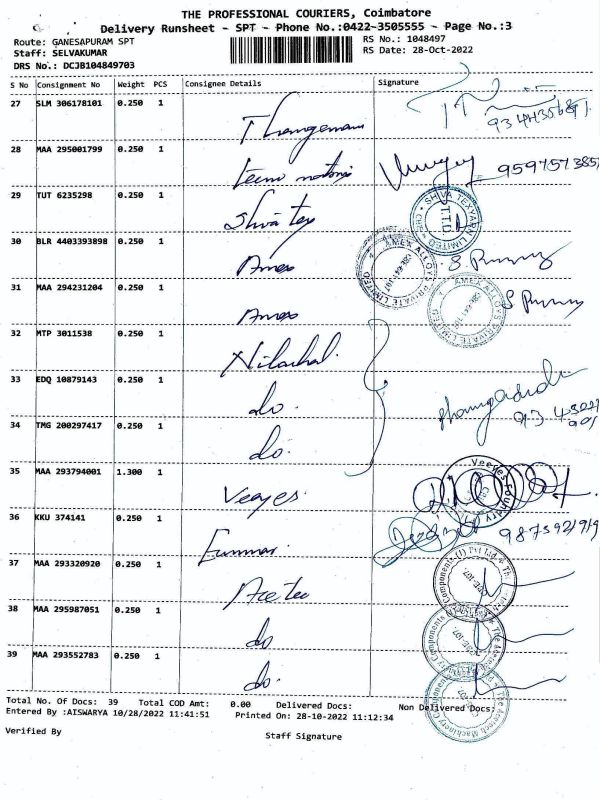 THE PROFESSIONAL COURIERS, Coimbatore
Delivery Runsheet - SPT - Phone No.:0422-3505555 - Page No.:3
Route: GANESAPURAM SPT
RS No.: 1048497
Staff: SELVAKUMAR
RS Date: 28-Oct-2022
DRS No.: DCJB104849703
S No Consignment No Weight PCS Consignee Details Signature
27 SLM 306178101 0.250 1
28 MAA 295001799 0.250 1
29 TUT 6235298 0.250 1 Shiva tex SHIVA TEXYARN LIMITED
30 BLR 4403393898 0.250 1 Amex AMEX ALLOYS PRIVATE LIMITED
31 MAA 294231204 0.250 1 Amex AMEX ALLOYS PRIVATE LIMITED
32 MTP 3011538 0.250 1
33 EDQ 10879143 0.250 1 do.
34 TMG 200297417 0.250 1 do.
35 MAA 293794001 1.300 1 Veeyes. Veeyes Foundry
36 KKU 374141 0.250 1
37 MAA 293320920 0.250 1
38 MAA 295987051 0.250 1 do
39 MAA 293552783 0.250 1 do.
Total No. Of Docs: 39 Total COD Amt: 0.00 Delivered Docs: Non Delivered Docs:
Entered By :AISWARYA 10/28/2022 11:41:51 Printed On: 28-10-2022 11:12:34
Verified By
Staff Signature